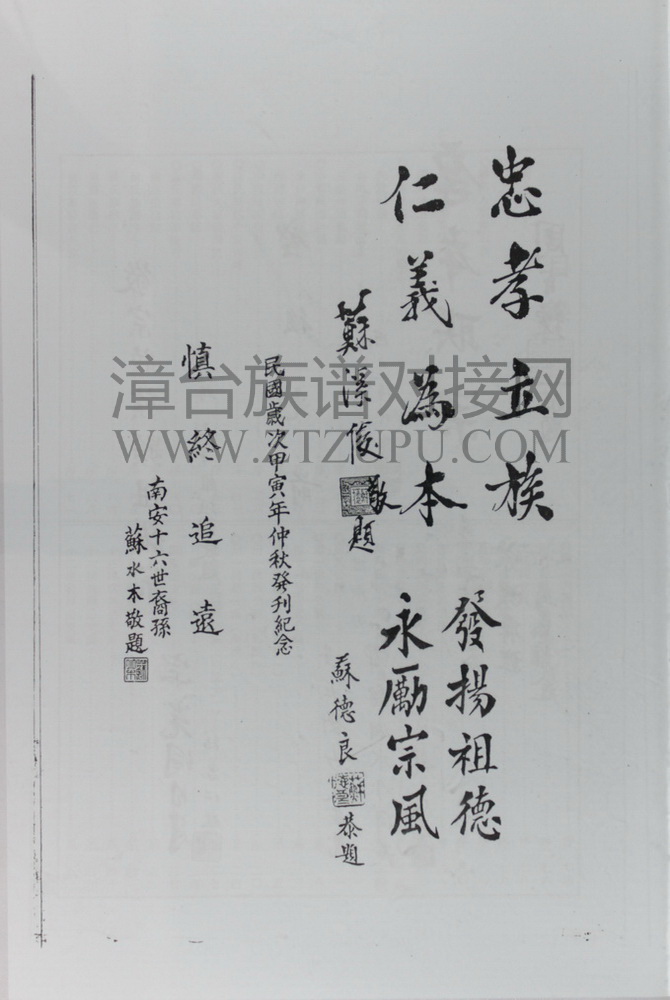 忠孝立族
仁義為本
蘇深俊敬題
發揚祖德
永勵宗風
蘇德良
恭題
民國歲次甲寅年仲秋發刊紀念
慎終追遠
南安十六世裔孫
蘇水木敬題
漳台族谱对接网
WWW.ZTZUPU.COM